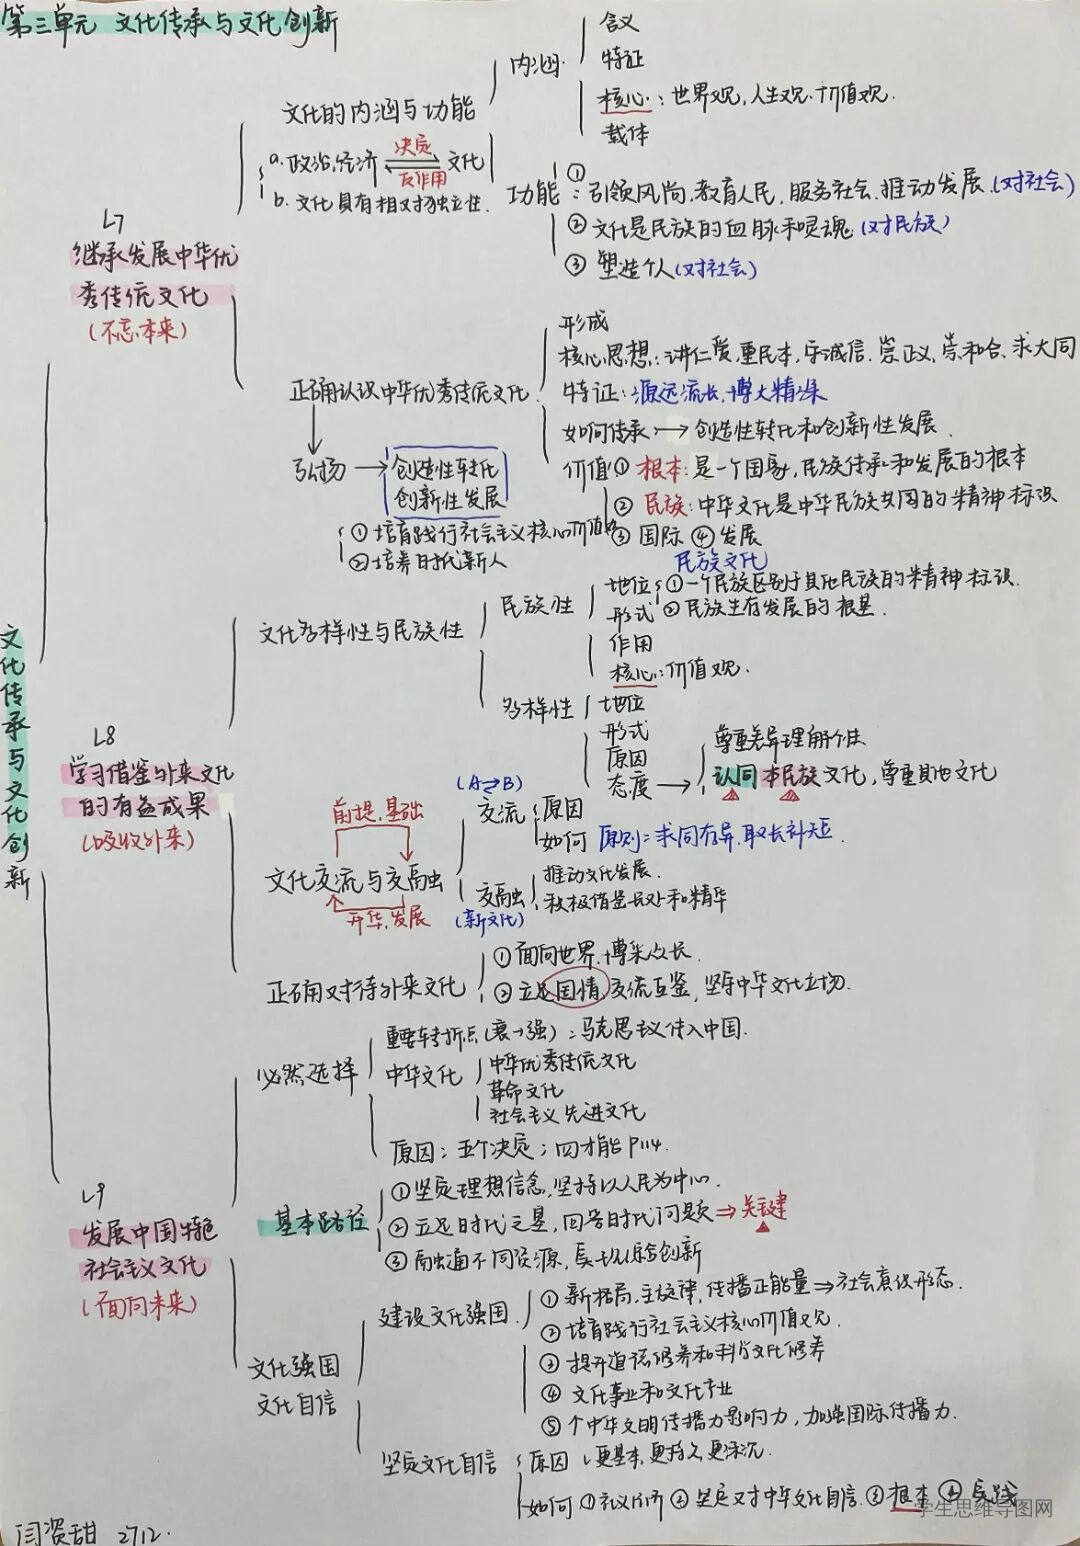 第三单元 文化传承与文化创新
文化传承与文化创新
L7
继承发展中华优
秀传统文化
(不忘本来)
文化的内涵与功能
a. 政治,经济 决定 反作用 文化
b. 文化具有相对独立性.
内涵
含义
特征
核心:世界观,人生观.价值观.
载体
功能:
①引领风尚,教育人民,服务社会,推动发展.(对社会)
②文化是民族的血脉和灵魂(对民族)
③塑造个人(对社会)
正确认识中华优秀传统文化
弘扬
创造性转化
创新性发展
①培育践行社会主义核心价值
②培养时代新人
形成
核心思想:讲仁爱,重民本,守诚信.崇正义,尚和合,求大同
特征:源远流长,博大精深
如何传承→创造性转化和创新性发展.
价值①根本:是一个国家,民族传承和发展的根本
②民族:中华文化是中华民族共同的精神标识
③国际 ④发展
L8
学习借鉴外来文化
的有益成果
(吸收外来)
文化多样性与民族性
民族性
民族文化
地位 ①一个民族区别于其他民族的精神标识.
形式 ②民族生存发展的根基.
作用
核心:价值观.
多样性
地位
形式
原因
态度→
尊重差异理解个性
认同本民族文化,尊重其他文化
文化交流与交融
前提.基础
升华.发展
(A⇄B)
交流
原因
如何 原则:求同存异.取长补短.
交融
(新文化)
推动文化发展.
积极借鉴 和精华
正确对待外来文化
①面向世界.博采众长.
②立足国情,交流互鉴,坚守中华文化立场.
L9
发展中国特色
社会主义文化
(面向未来)
必然选择
重要转折点(衰→强):马克思主义传入中国.
中华文化
中华优秀传统文化
革命文化
社会主义先进文化
原因:五个决定;四才能P114.
基本路径
①坚定理想信念,坚持以人民为中心.
②立足时代之基,回答时代问题⇒关键
③融通不同资源,
文化强国
文化自信
建设文化强国.
①新格局,主旋律,传播正能量→社会意识形态.
②培育践行社会主义核心价值观.
③提升道德修养和科学文化修养
④文化事业和文化产业
⑤个中华文明传播力影响力,加强国际传播力.
坚定文化自信
原因 更基本,更持久,更深沉.
如何 ① ②坚定对中华文化自信.③根本 ④实践
学生思维导图网
闫资甜 2712.